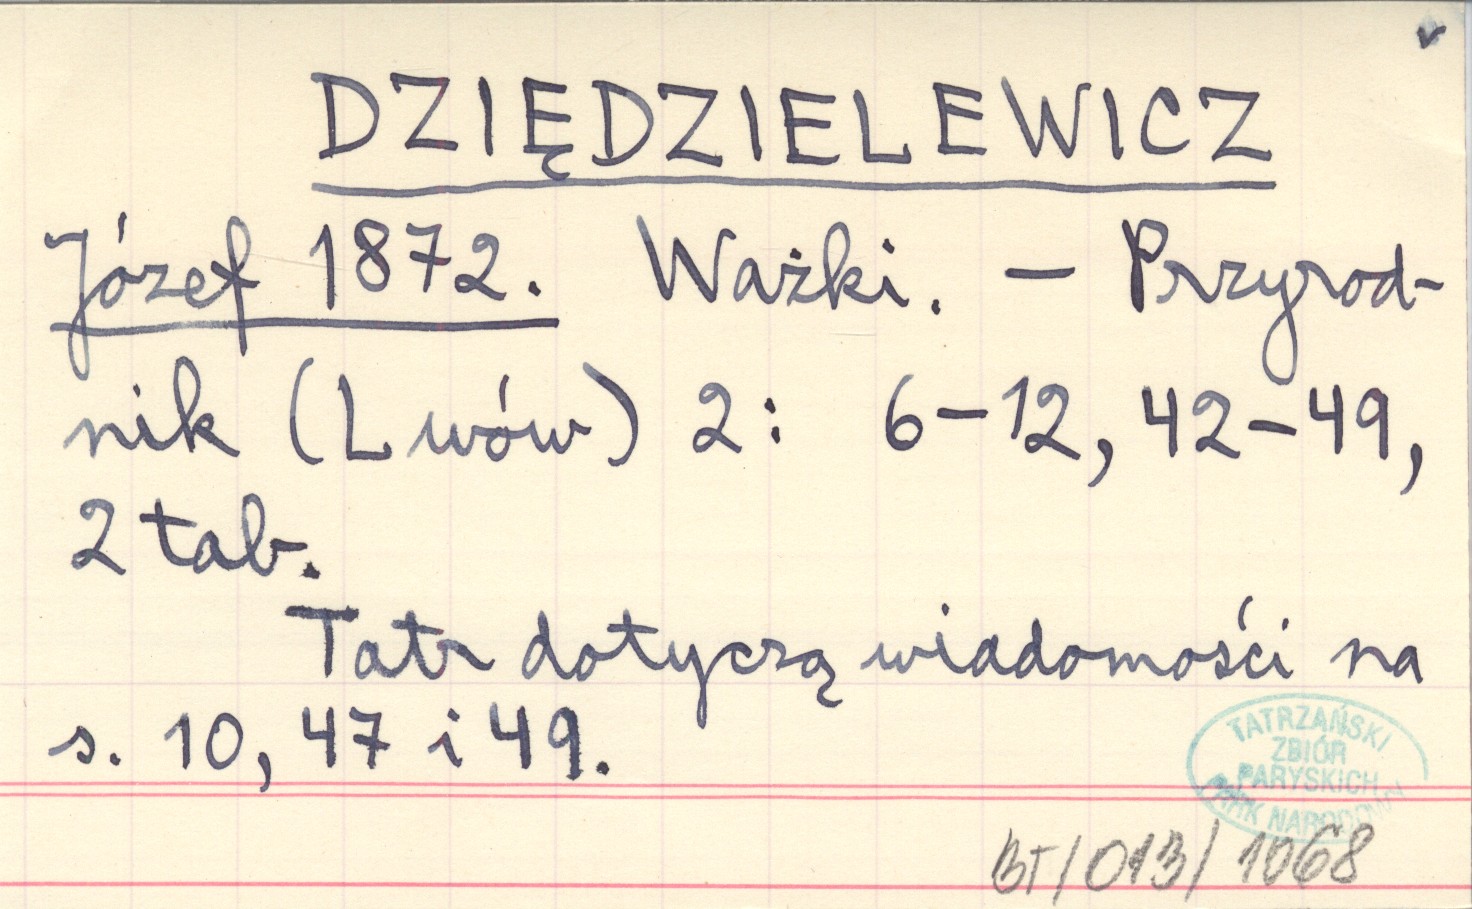 DZIĘDZIELEWICZ
Józef 1872. Ważki. – Przyrod-
nik (Lwów) 2: 6–12, 42–49,
2 tab.
Tatr dotyczą wiadomości na
s. 10, 47 i 49.
TATRZAŃSKI
ZBIÓR
PARYSKICH
PARK NARODOWY
BT/013/1068